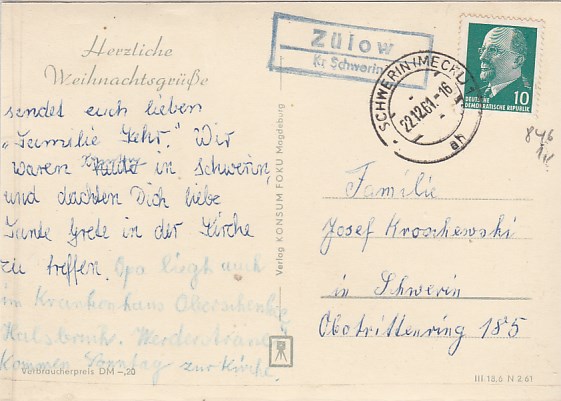 Herzliche
Weihnachtsgrüße
sendet euch lieben
"Familie Gehr." Wir
waren heute in Schwerin,
und dachten Dich liebe
Tante Grete in der Kirche
zu treffen. Opa liegt auch
im Krankenhaus Oberschenkel
Halsbruch. Werderstraße
Kommen Sonntag zur Kirche.
Verbraucherpreis DM -,20
Verlag KONSUM FOKU Magdeburg
Zülow
Kr. Schwerin
SCHWERIN (MECKL) 1
22.12.61.-16
ah
DEUTSCHE
DEMOKRATISCHE REPUBLIK
10
846
Familie
Josef Kroschewski
in Schwerin
Obotrittenring 185
III 18,6 N 2 61